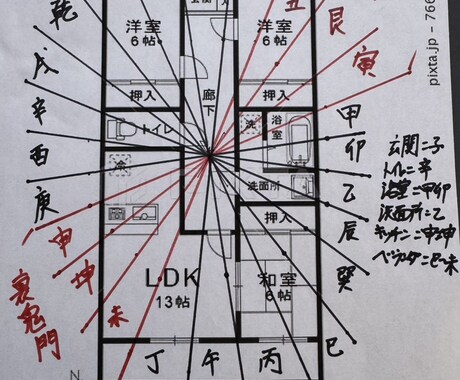 玄関
乾
洋室
6帖
洋室
6帖
丑
艮
寅
pixta.jp - 766
戌
押入
廊下
押入
甲
辛
トイレ
洗
浴室
卯
玄関=子
トイレ=辛
浴室=甲卯
洗面所=乙
キッチン=申坤
ベランダ=巳~未
酉
冷
洗面所
乙
庚
押入
辰
申
坤
未
裏鬼門
LDK
13帖
和室
6帖
癸
丁
午
丙
巳
N